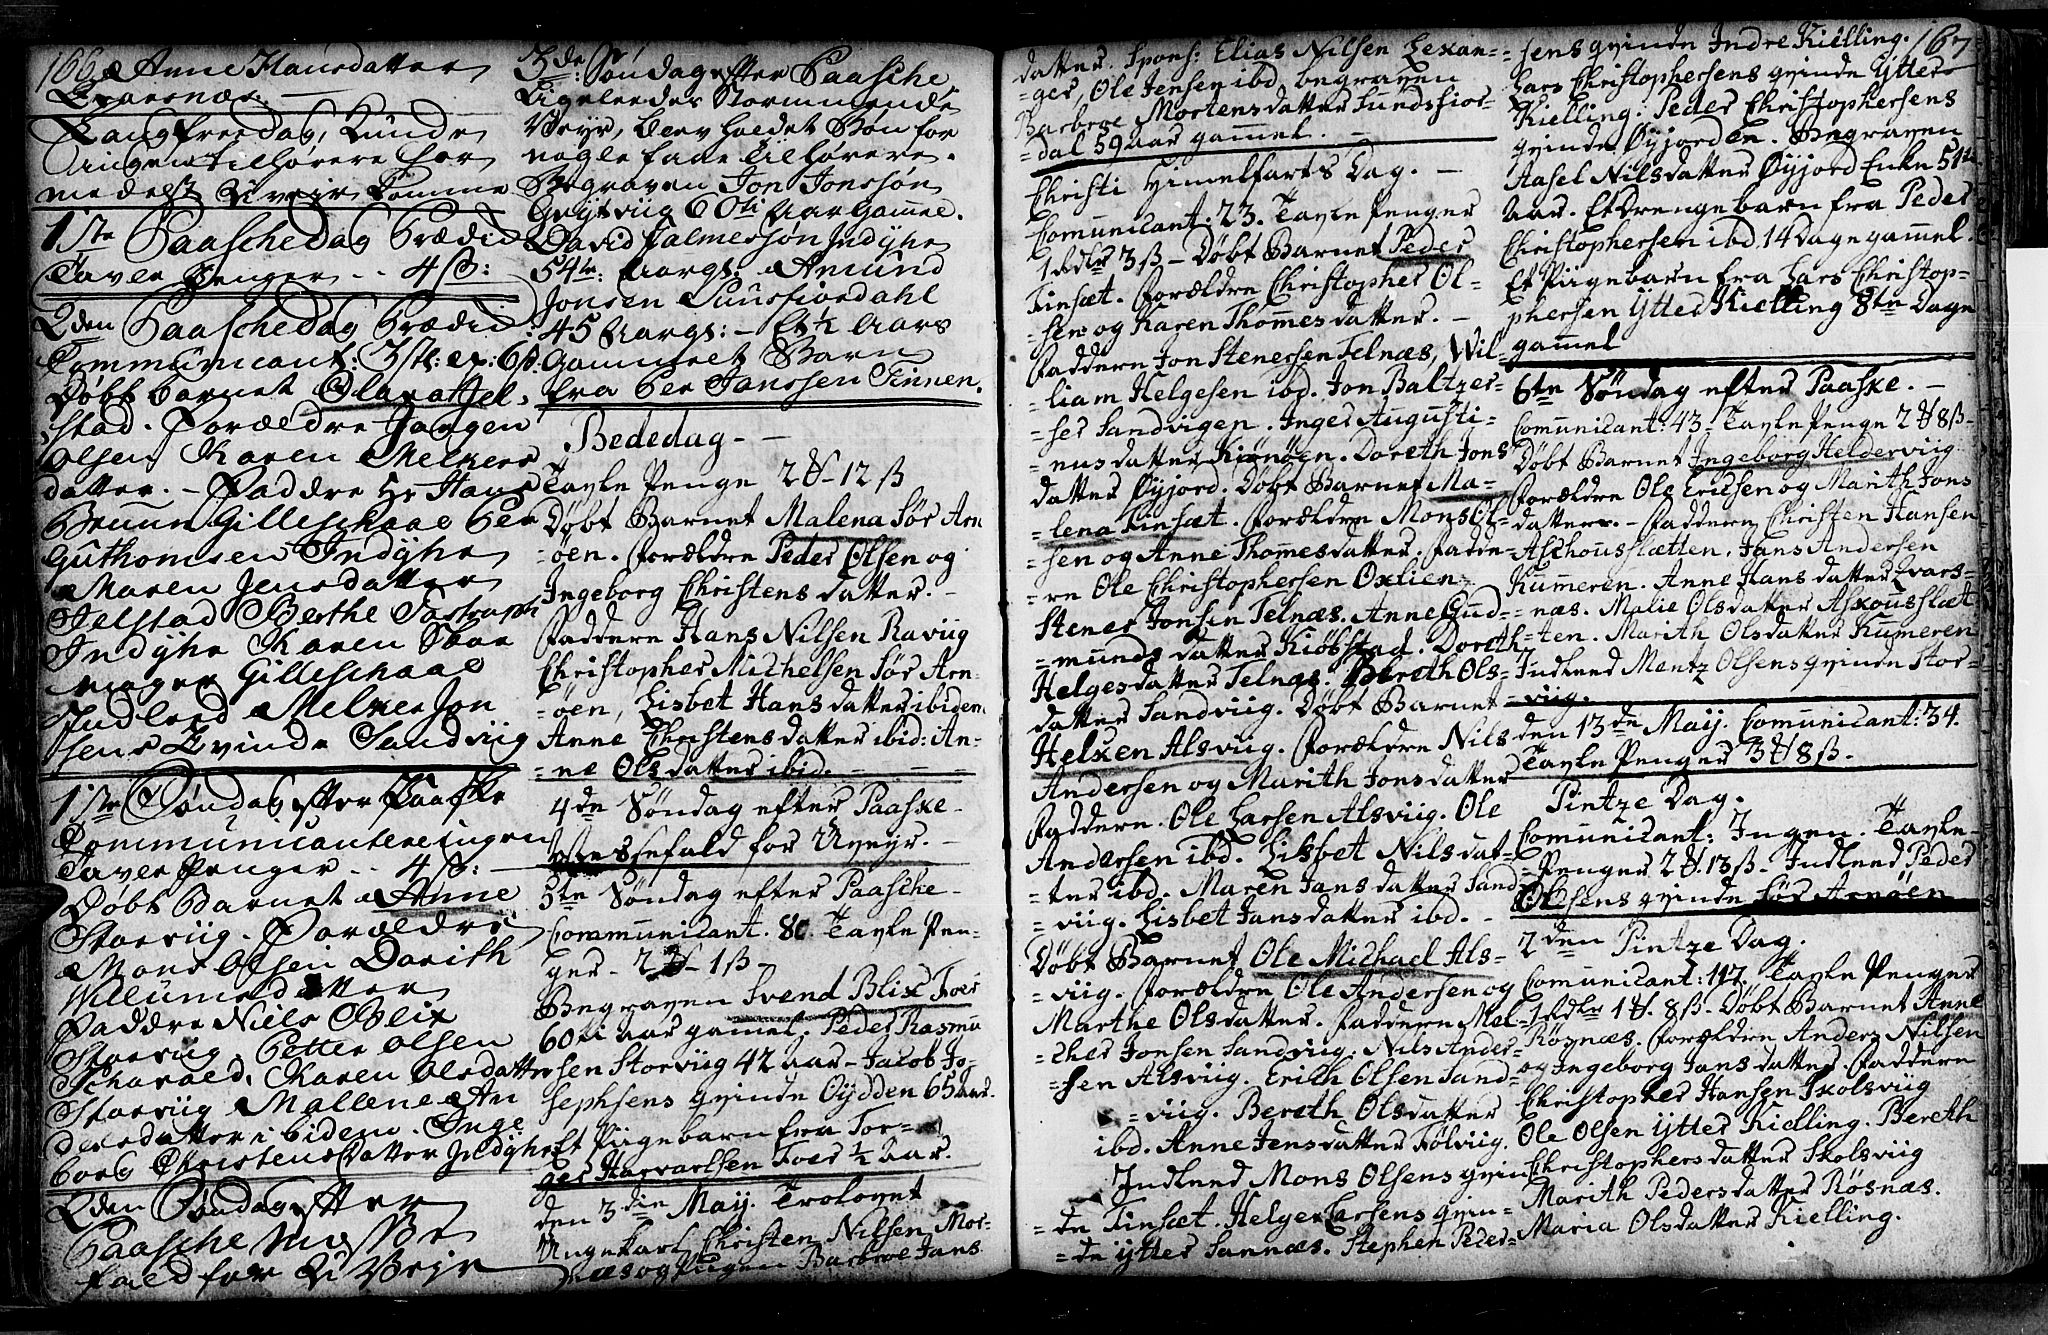 166 Anne Hansdatter
Qvarsnæs.
Langfredag, Kunde
ingen tillhørere for
medelst Uveir komme
1ste Paaschedag Prædik
Tavle Penger .. 4 ß:
2den Paaschedag Prædik:
Communicant: 3
Døbt barnet Ola
stad. Forældre Jørgen
Olsen Karen Melkers
datter. - Faddre Hr Hans
Bruun Gilleschaal Per
Guthomsen Indyhr
Maren Jensdatter
Jelstad Berthe
Indyhr Karen
Gilleschaal
Indleed Melker Jon
sens Qvinde Sandviig
1ste Søndag efter Paaske
Communicantere ingen
Tavle Penger .. 4 ß:
Døbt Barnet Anne
Storviig. Forældre
Mons Olsen Dorith
Willumsdatter
Faddre Niels Blix
Storviig Petter Olsen
Karen Olsdatter
Storviig Mallene An
dersdatter ibidem. Inge
borg Christensdatter Indyhr
2den Søndag efter
Paasche Messe
fald for UVejr
3de: Søndag efter Paasche
Ligeleedes Stormmende
Veyr, blev holdet Bøn for
nogle faae Tilhørere.
Begraven Jon Jonssøn
Grytviig 60ti Aar Gammel.
David Falmersøn Indyhr
54de: Aargl: Amund
Jonsen Sunsfiordahl
45 Aargl: - Et ½ Aars
gammelt Barn
fra Per Janssen Finnen.
Bededag -
Tavle Penge 2 - 12 ß
Døbt Barnet Malena Sør Arn
=øen. Forældre Peder Olsen og
Ingeborg Christens datter. -
Faddere Hans Nilsen Raviig
Christopher Michelsen Sør Arn-
=øen, Lisbet Hans datter ibidem
Anne Christens datter ibid: An-
=ne Olsdatter ibid.
4de Søndag efter Paaske -
Messefald for Uveyr. -
5te Søndag efter Paasche -
Communicant. 80 Tavle Pen-
ger - 2 - 1 ß -
Begraven Svend Blix Foer
60ti aar gamel. Peder Rasmu
sen Storviig 42 aar - Jacob Jo-
sephsens qvinde Oÿdden 65 aar.
Et Piigebarn fra Tor-
ger Harvartsen Foer ½ aar.
den 3die Maij. Trolovet
Ungekarl Christen Nilsen Mor-
næs og Pigen Barbroe Jans
datter. Spons: Elias Nilsen Lexan-
=ger, Ole Jensen ibd. begraven
Barbroe Mortensdatter Sundsfior-
=dal 59 aar gammel. -
Christi Himelfarts Dag. -
Comunicant: 23. Tavle Penger
1 Rdlr 3 ß - Døbt Barnet Peder
Finsæt. Forældre Christopher Ol-
=sen og Karen Thommes datter. -
Faddern Jon Stenersen Telnæs, Wil-
=liam Helgesen ibd. Jon Baltzer-
=ser Sandvigen. Inger Augusti-
=nus datter Kiønøen. Doreth Jons
datter Øyjord. Døbt Barnet Ma-
=lena Finsæt. Forældre Mons Ol-
sen og Anne Thommesdatter. Fadde-
=re Ole Christophersen Oxlien
Stener Jonsen Telnæs. Anne Gud-
=munds datter Kiøbstad. Doreth
Helgesdatter Telnæs. Bereth Ols-
datter Sandviig. Døbt Barnet
Helxen Alsviig. Forældre Nils
Andersen og Marith Jonsdatter
Faddern. Ole Larsen Alsviig. Ole
Andersen ibd. Lisbet Nilsdat-
=ter ibd. Maren Jans datter Sand
=viig. Lisbet Jansdatter ibd. -
Døbt Barnet Ole Michael Als-
=viig. Forældre Ole Andersen og
Marthe Olsdatter. Faddern Mel-
=cher Jonsen Sandviig. Nils Ander-
=sen Alsviig. Erich Olsen Sand-
=viig. Bereth Olsdatter
ibd. Anne Jensdatter Følviig.
Indleed Mons Olsens qvin
=de Finsæt. Helger Larsens qvin-
=de ÿtter Sannæs. Stephen Peder-
sens qvinde Indre Kielling. 167
Lars Christophersens qvinde Ytter
Kielling. Peder Christophersens
qvinde Øyjorden. Begraven
Aasel Nilsdatter Øyjord Enke 51te
aar. Et Drengebarn fra Peder
Christophersen ibd. 14 Dage gammel.
Et Piigebarn fra Lars Christop-
phersen Ytter Kielling 8te Dage
gammel
6te Søndag efter Paaske. -
Comunicant: 43 - Tavle Penge 2 8 ß -
Døbt Barnet Ingeborg Helderviig
Forældre Ole Ericsen og Marith Jons
datter. - Faddern Christen Hansen
Aschousslætten. Jans Andersen
Kumeren. Anne Hans datter Qvars-
=næs. Malie Olsdatter Askousslæt
=ten. Marith Olsdatter Kumeren
Indleed Mentz Olsens qvinde Stor-
=viig.
den 13de Maij. Comunicant: 34.
Tavle Penger 3 8 ß -
Pintze Dag.
Comunicant: Ingen. Tavle-
=Penger 2 13 ß - Indleed Peder
Olsens qvinde Sør Arnøen
2den Pintze Dag.
Comunicant: 117. Tavle Penger
1 Rdlr 1 8 ß - Døbt Barnet Anne
Røsnæs. Forældre Anders Nilsen
og Ingeborg Jans datter. Faddern
Christopher Hansen Skolsviig
Ole Olsen Ytter Kielling. Bereth
Christophers datter Skolsviig
Marith Pedersdatter Røsnæs.
Maria Olsdatter Kielling.